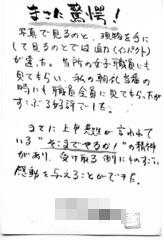 まさに驚愕！
写真で見るのと、現物を手に
して見るのとでは迫力（インパクト）
が違った。当所の女子職員にも
見てもらい、私の朝礼当番の
時にも職員全員に見てもらったが
すこぶる好評でした。
まさに上甲晃性が言われて
いる“そこまでやるか！”の精神
があり、受け取る側にものすごい
感動を与えることができた。